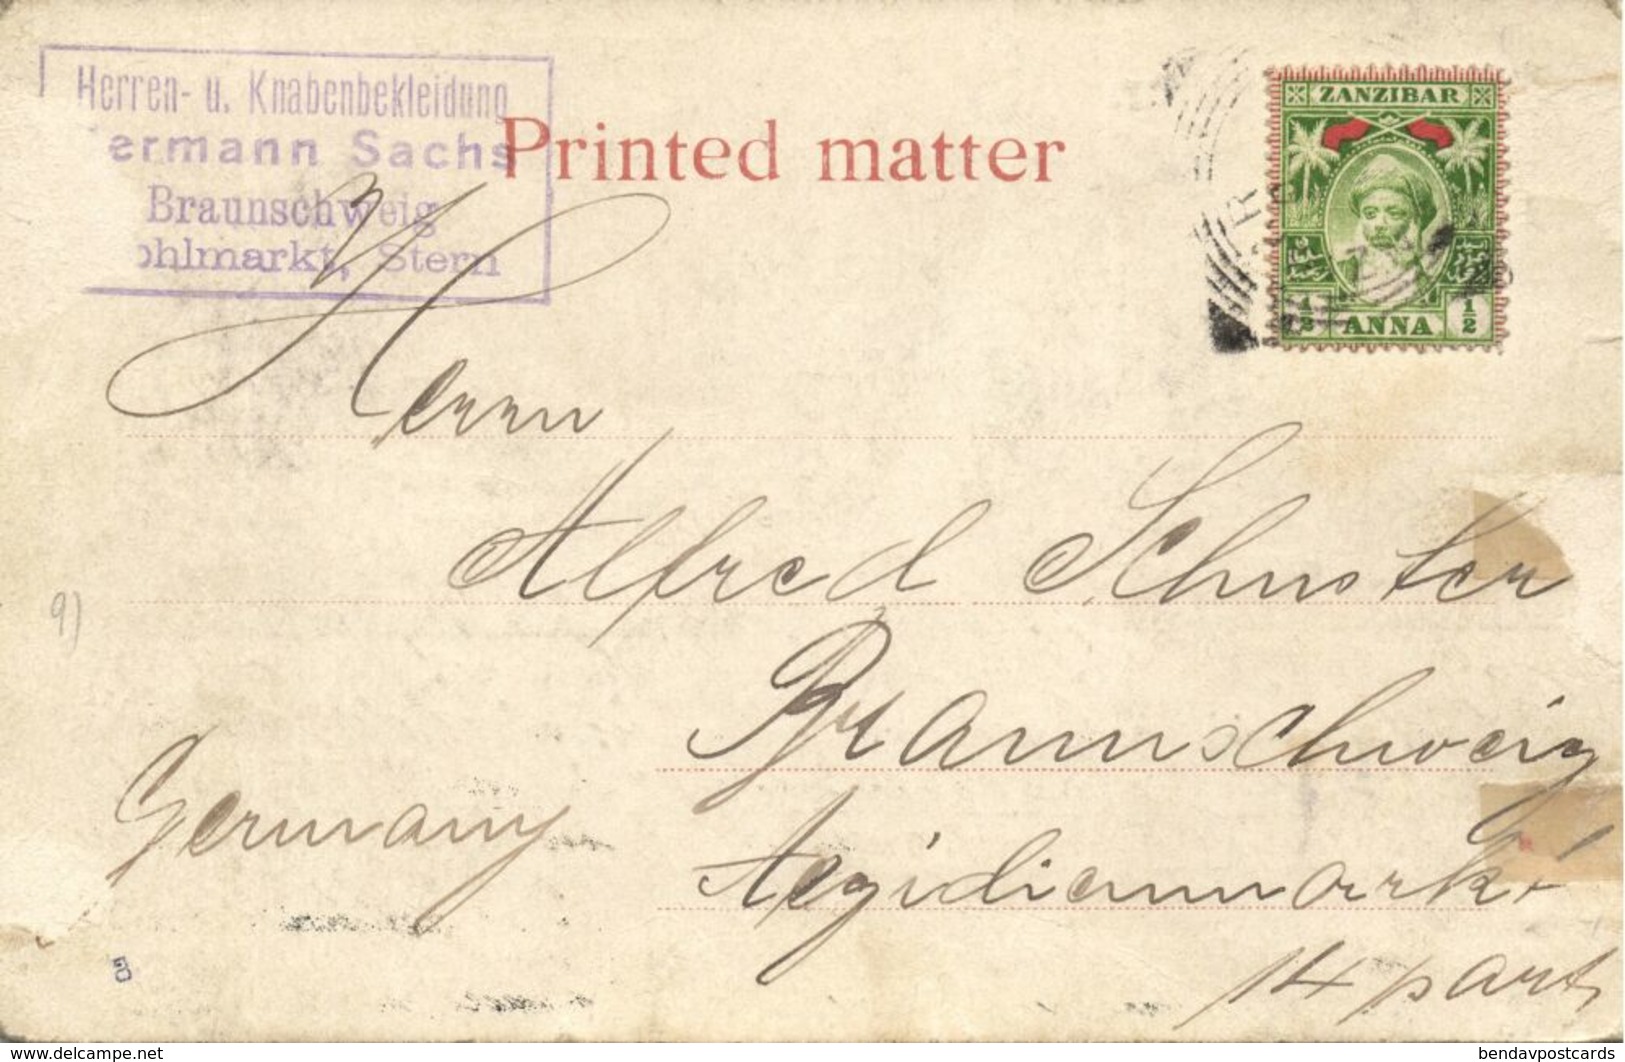 Herren- u. Knabenbekleidung
ermann Sachs
Braunschweig
ohlmarkt, Stern
Printed matter
ZANZIBAR
1/2 ANNA 1/2
Herrn
Alfred Schuster
Braunschweig
Germany
Aegidienmarkt
14 part
9)
www.delcampe.net
bendavpostcards